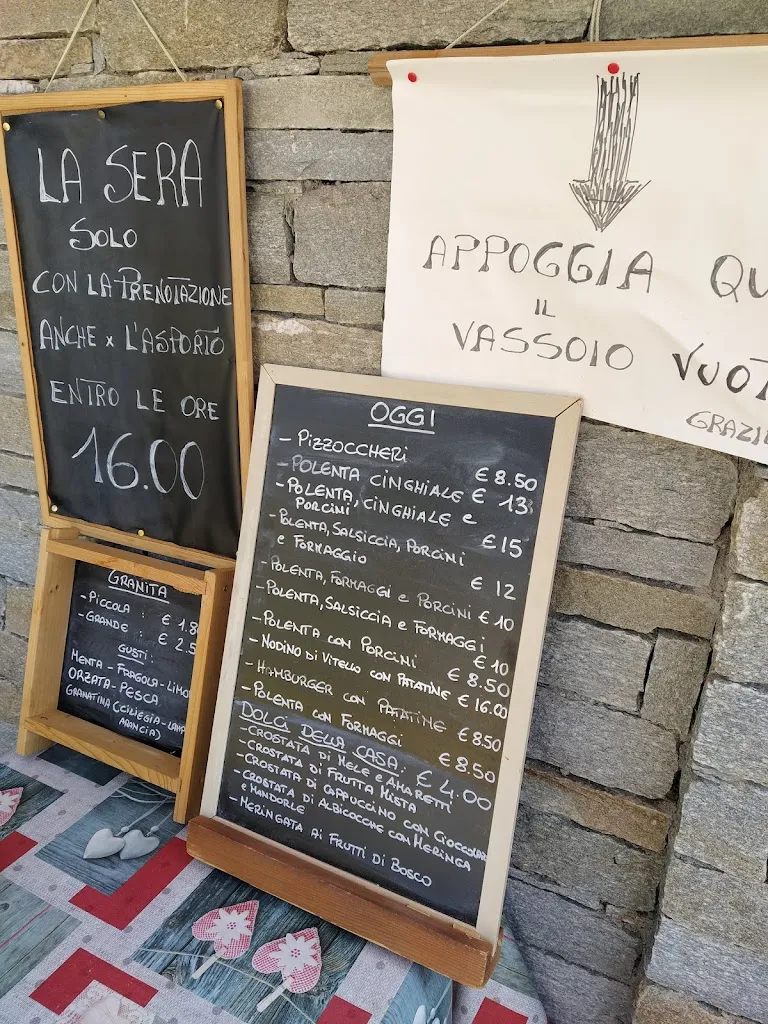 LA SERA
SOLO
CON LA PRENOTAZIONE
ANCHE x L'ASPORTO
ENTRO LE ORE
16.00
APPOGGIA QU
IL
VASSOIO VUOT
GRAZI
OGGI
- PIZZOCCHERI € 8.50
- POLENTA CINGHIALE € 13
- POLENTA, CINGHIALE e
PORCINI € 15
- POLENTA, SALSICCIA, PORCINI
e FORMAGGIO € 12
- POLENTA, FORMAGGI e PORCINI € 10
- POLENTA, SALSICCIA e FORMAGGI € 10
- POLENTA CON PORCINI € 8.50
- NODINO DI VITELLO CON PATATINE € 16.00
- HAMBURGER CON PATATINE € 8.50
- POLENTA CON FORMAGGI € 8.50
DOLCI DELLA CASA: € 4.00
- CROSTATA DI MELE e AMARETTI
- CROSTATA DI FRUTTA MISTA
- CROSTATA DI CAPPUCCINO CON CIOCCOLA
e MANDORLE
- CROSTATA DI ALBICOCCHE CON MERINGA
- MERINGATA AI FRUTTI DI BOSCO
GRANITA
- PICCOLA : € 1.8
- GRANDE : € 2.5
GUSTI:
MENTA - FRAGOLA - LIMO
ORZATA - PESCA
GRANATINA (CILIEGIA - LAMP
ARANCIA)